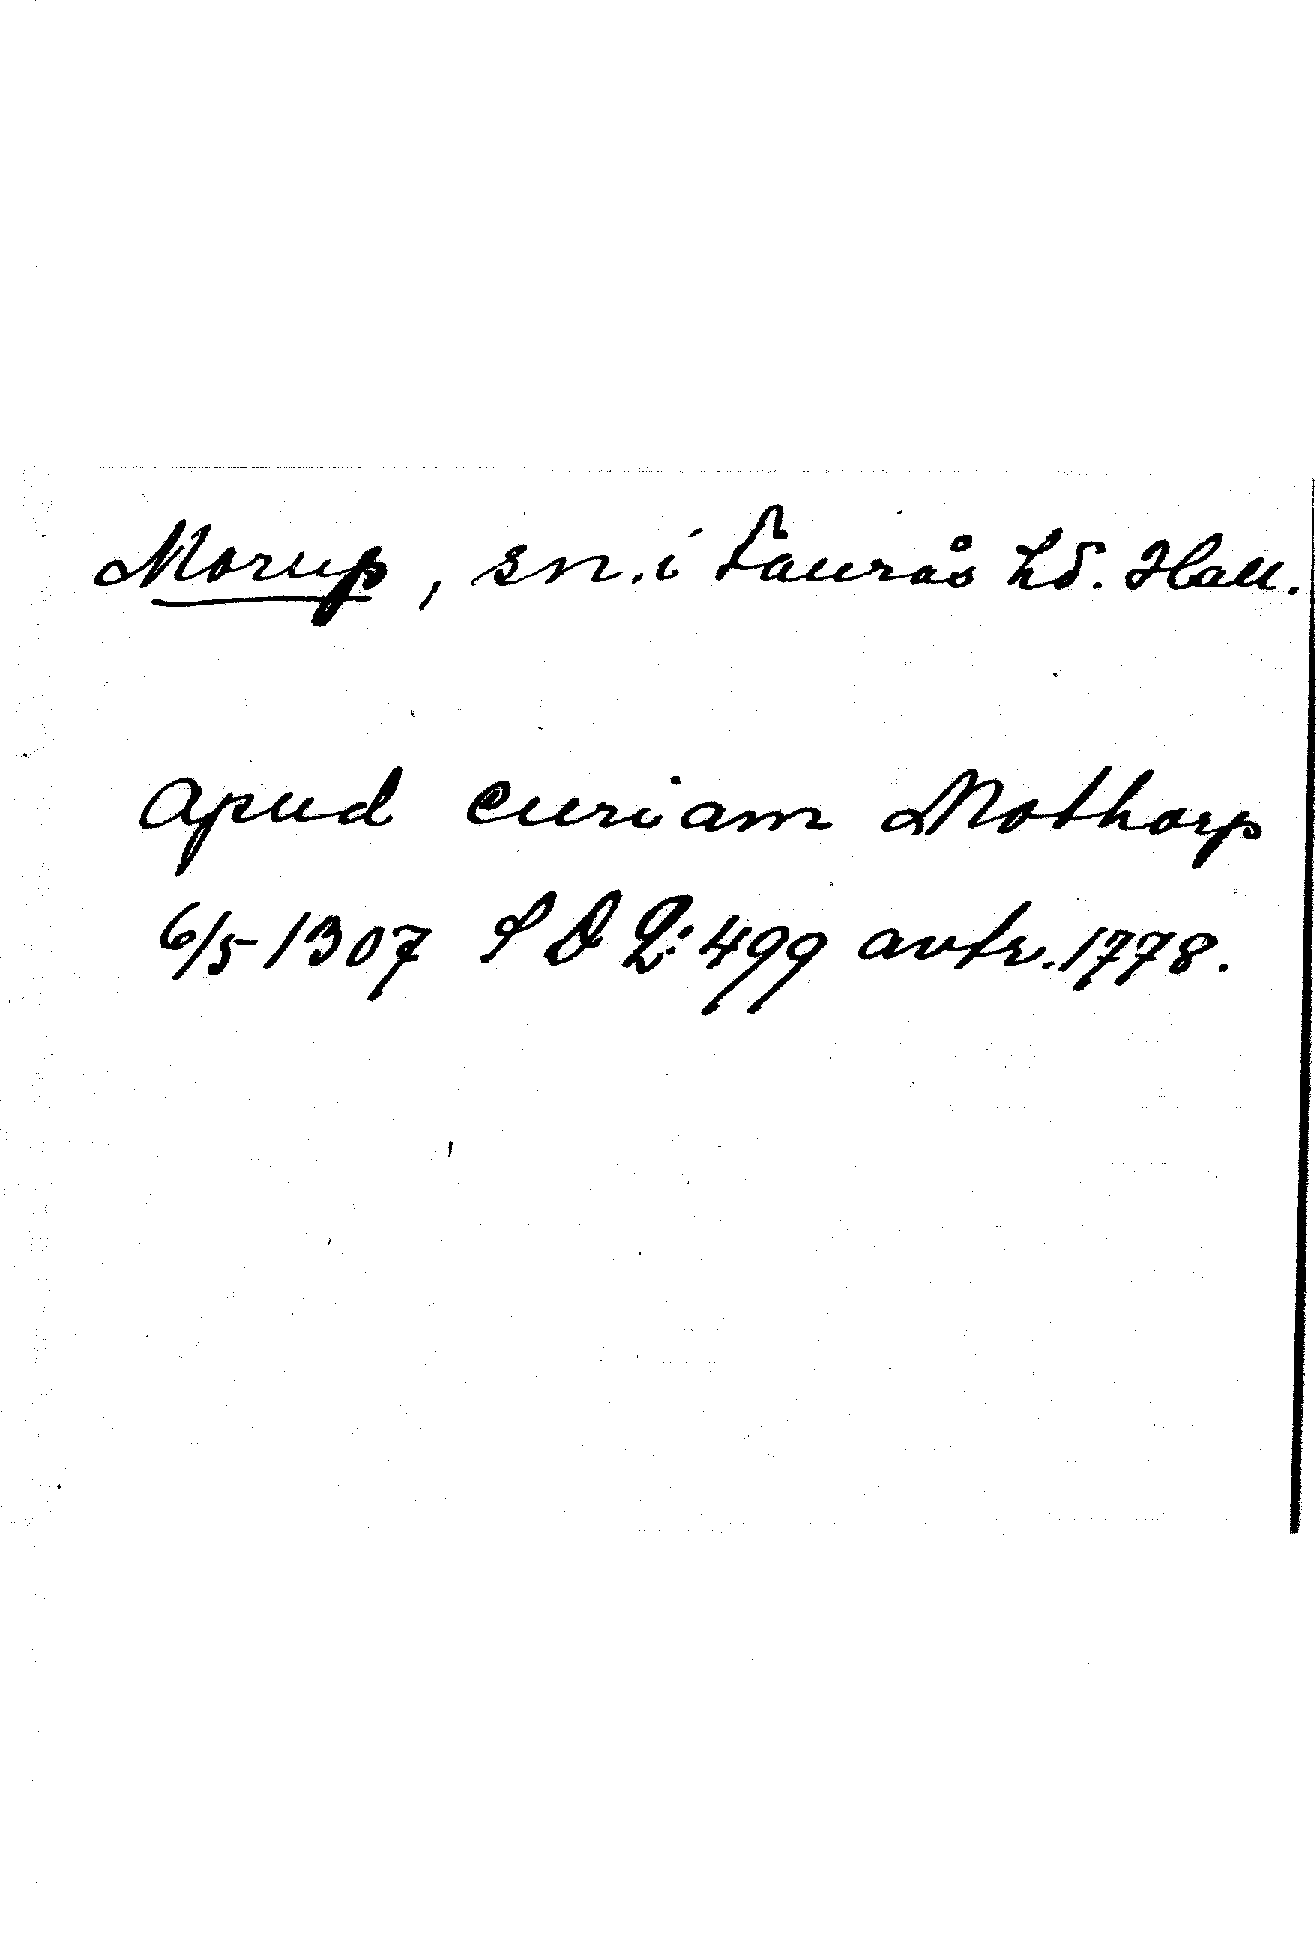 Morup, sn. i Faurås hd. Hall.
Apud curiam Mothorp
6/5 1307 SD 2:499 avtr. 1778.